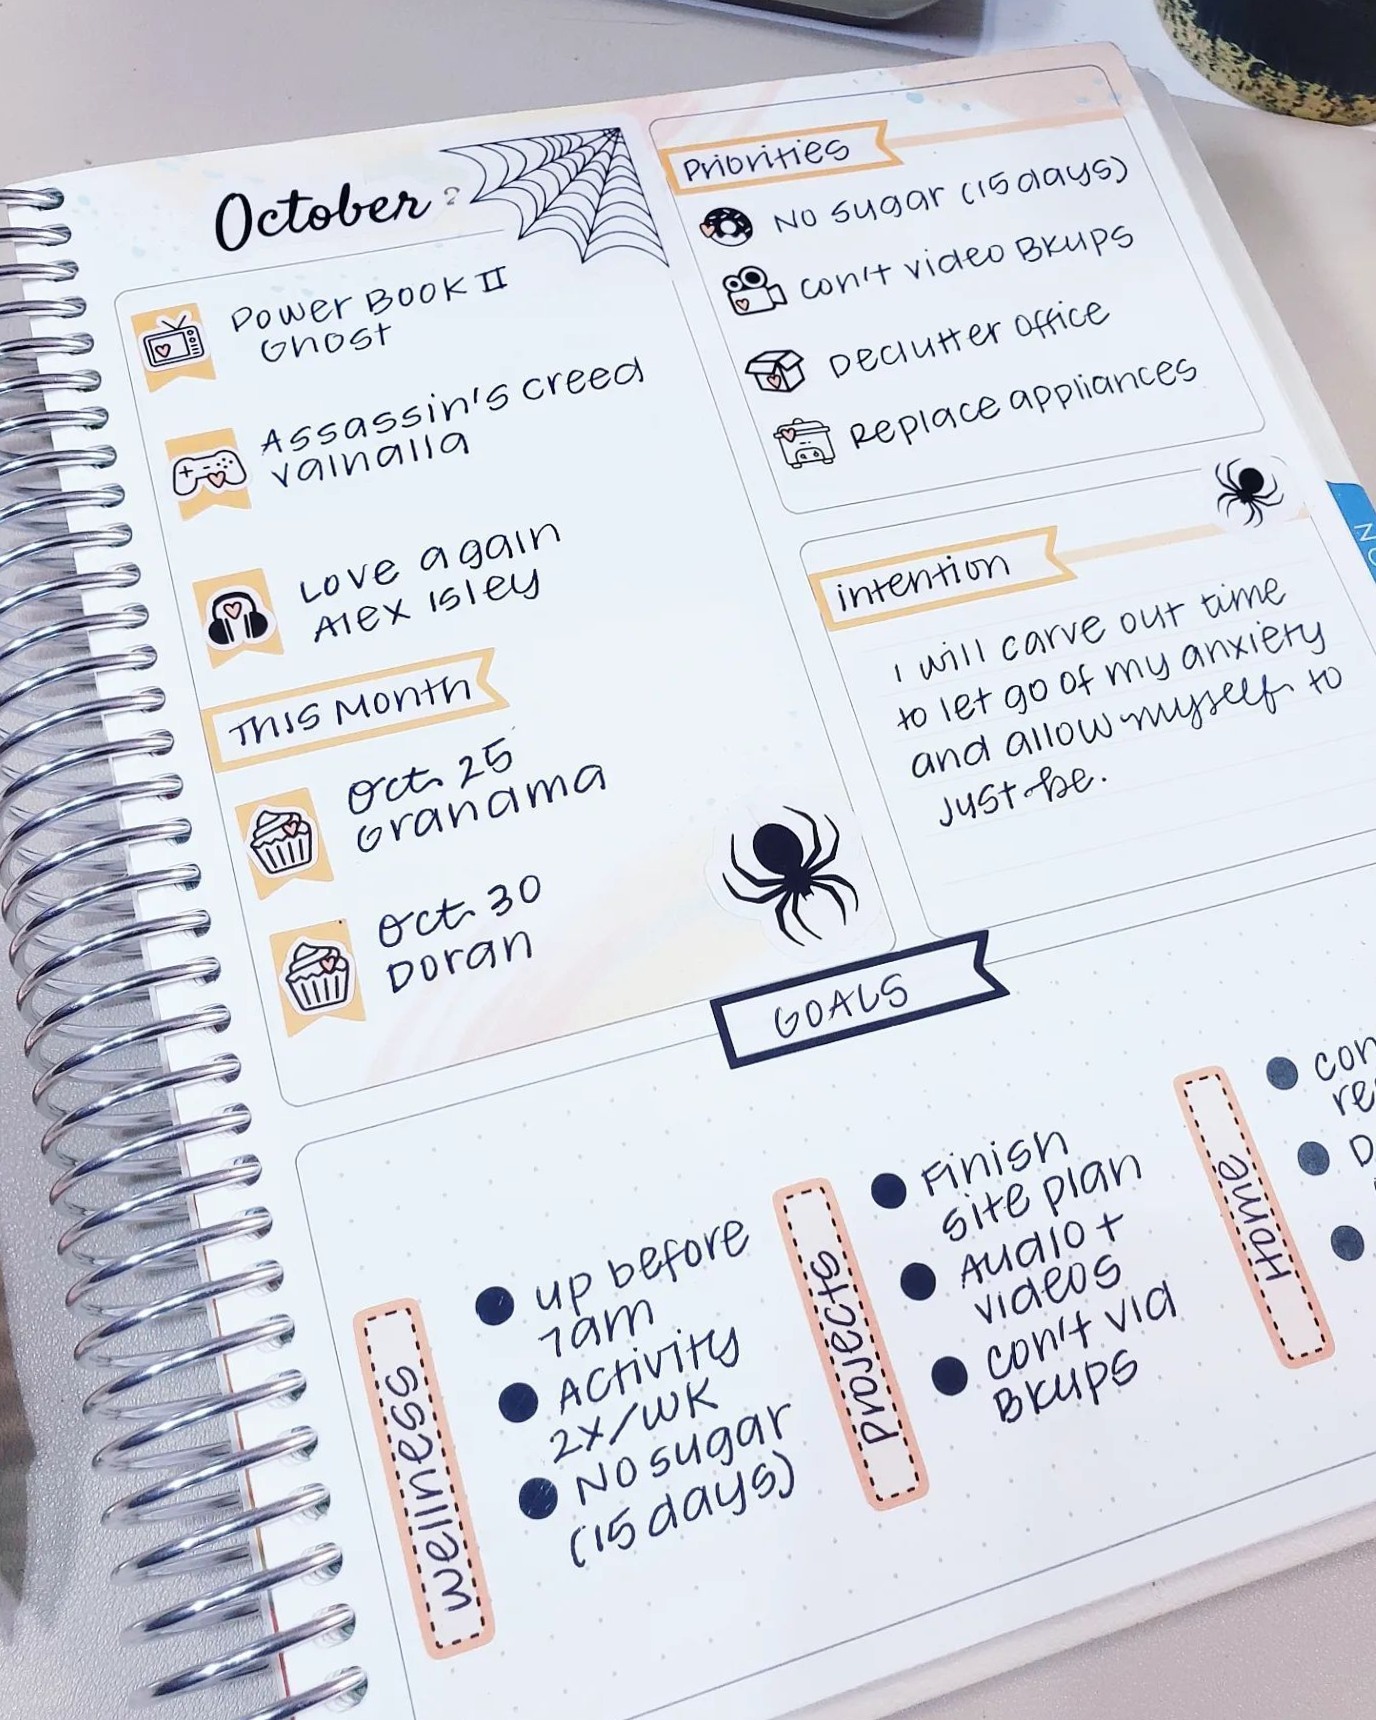 October
Power Book II
Ghost
Assassin's creed
valhalla
Love again
Alex Isley
This Month
Oct. 25
Grandma
Oct. 30
Doran
Priorities
No sugar (15 days)
con't video Bkups
Declutter office
Replace appliances
intention
I will carve out time
to let go of my anxiety
and allow myself to
just be.
GOALS
wellness
up before
7am
Activity
2x/wk
No sugar
(15 days)
Projects
Finish
site plan
Audio +
videos
con't vid
Bkups
Home
con
re
D
NO